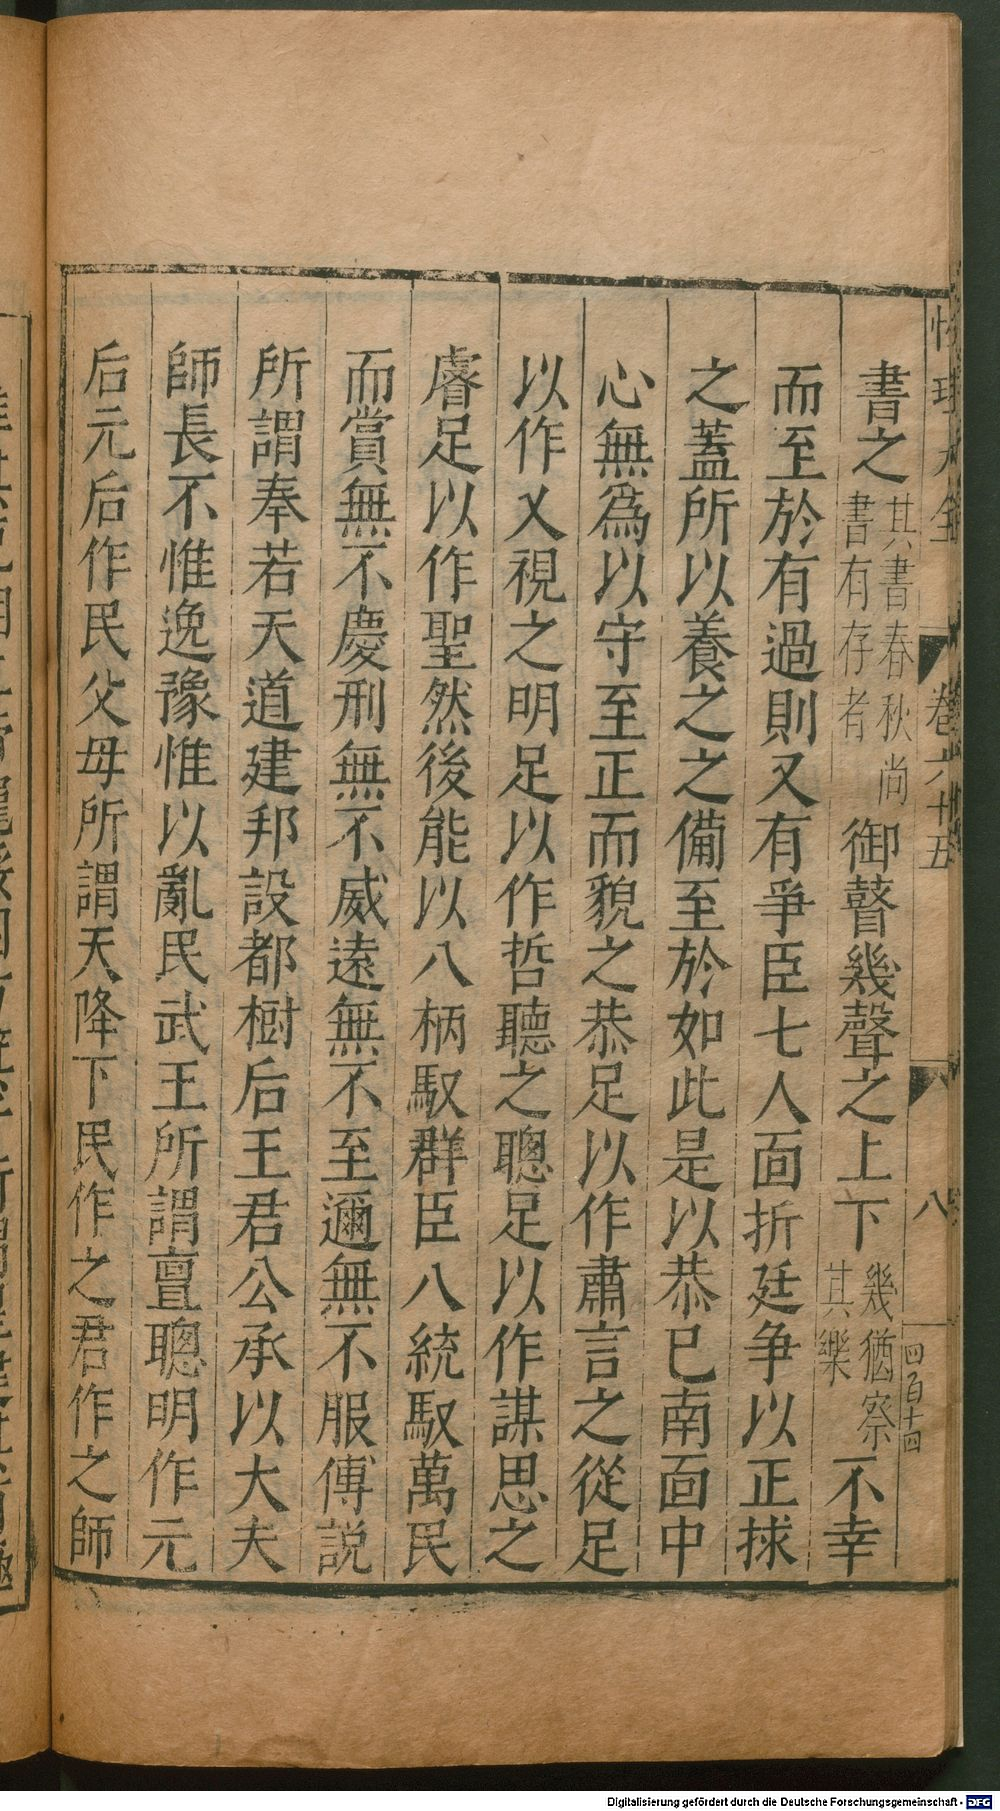 性理大全 卷六十五 八 四百十四
書之其書春秋尚書有存者御瞽幾聲之上下幾猶察其樂不幸
而至於有過則又有爭臣七人面折廷争以正捄
之蓋所以養之之備至於如此是以恭已南面中
心無爲以守至正而貌之恭足以作肅言之從足
以作乂視之明足以作哲聽之聰足以作謀思之
睿足以作聖然後能以八柄馭群臣八統馭萬民
而賞無不慶刑無不威遠無不至邇無不服傅説
所謂奉若天道建邦設都樹后王君公承以大夫
師長不惟逸豫惟以亂民武王所謂亶聰明作元
后元后作民父母所謂天降下民作之君作之師
Digitalisierung gefördert durch die Deutsche Forschungsgemeinschaft - DFG